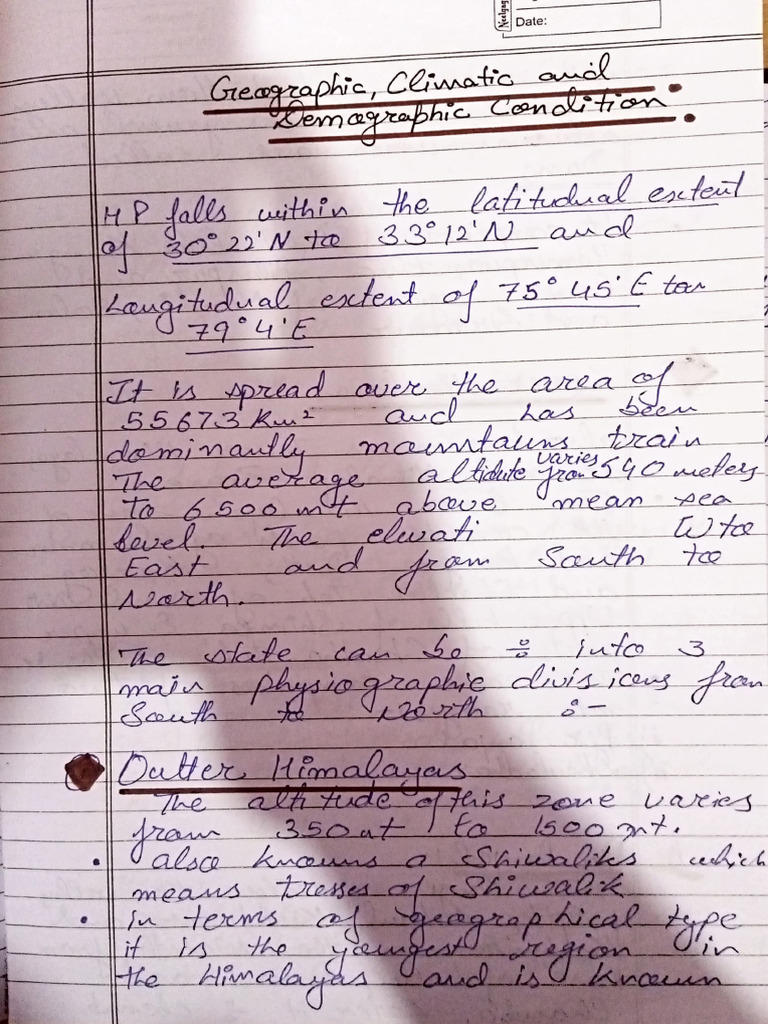 Neelgagan
Date:
Geographic, Climatic and
Demographic Condition.
HP falls within the latitudual extent
of 30° 22'N to 33° 12'N and
Longitudual extent of 75° 45' E to
79° 4' E
It is spread over the area of
55673 Km² and has been
dominantly mountauns train
The average altidute varies from 540 meters
To 6500 mt above mean sea
level. The elevati W to
East and from South to
North.
The state can be ÷ into 3
main physiographic divisions from
South to North :-
Outter Himalayas
The altitude of this zone varies
from 350 mt to 1500 mt.
• also knowns a Shiwaliks which
means tresses of Shiwalik
• in terms of geographical type
it is the youngest region in
the Himalayas and is known